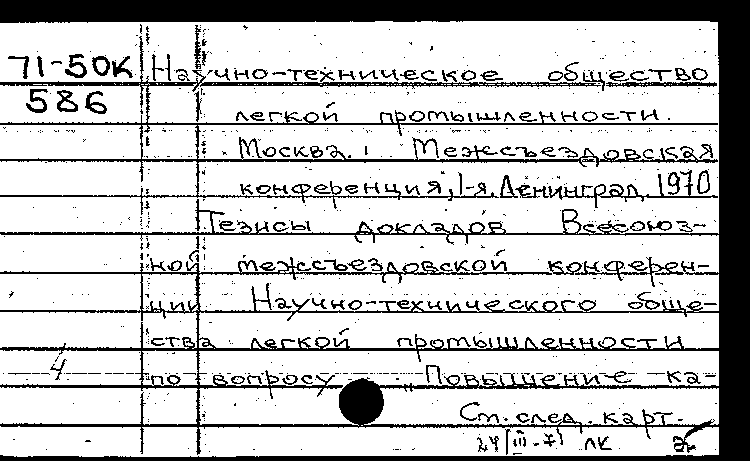 71-50К Научно-техническое общество
586 легкой промышленности.
Москва. Межсъездовская
конференция, 1-я. Ленинград, 1970
Тезисы докладов Всесоюз-
ной межсъездовской конферен-
ции Научно-технического обще-
ства легкой промышленности
4 по вопросу „Повышение ка-
См. след. карт.
24/III-71 ЛК